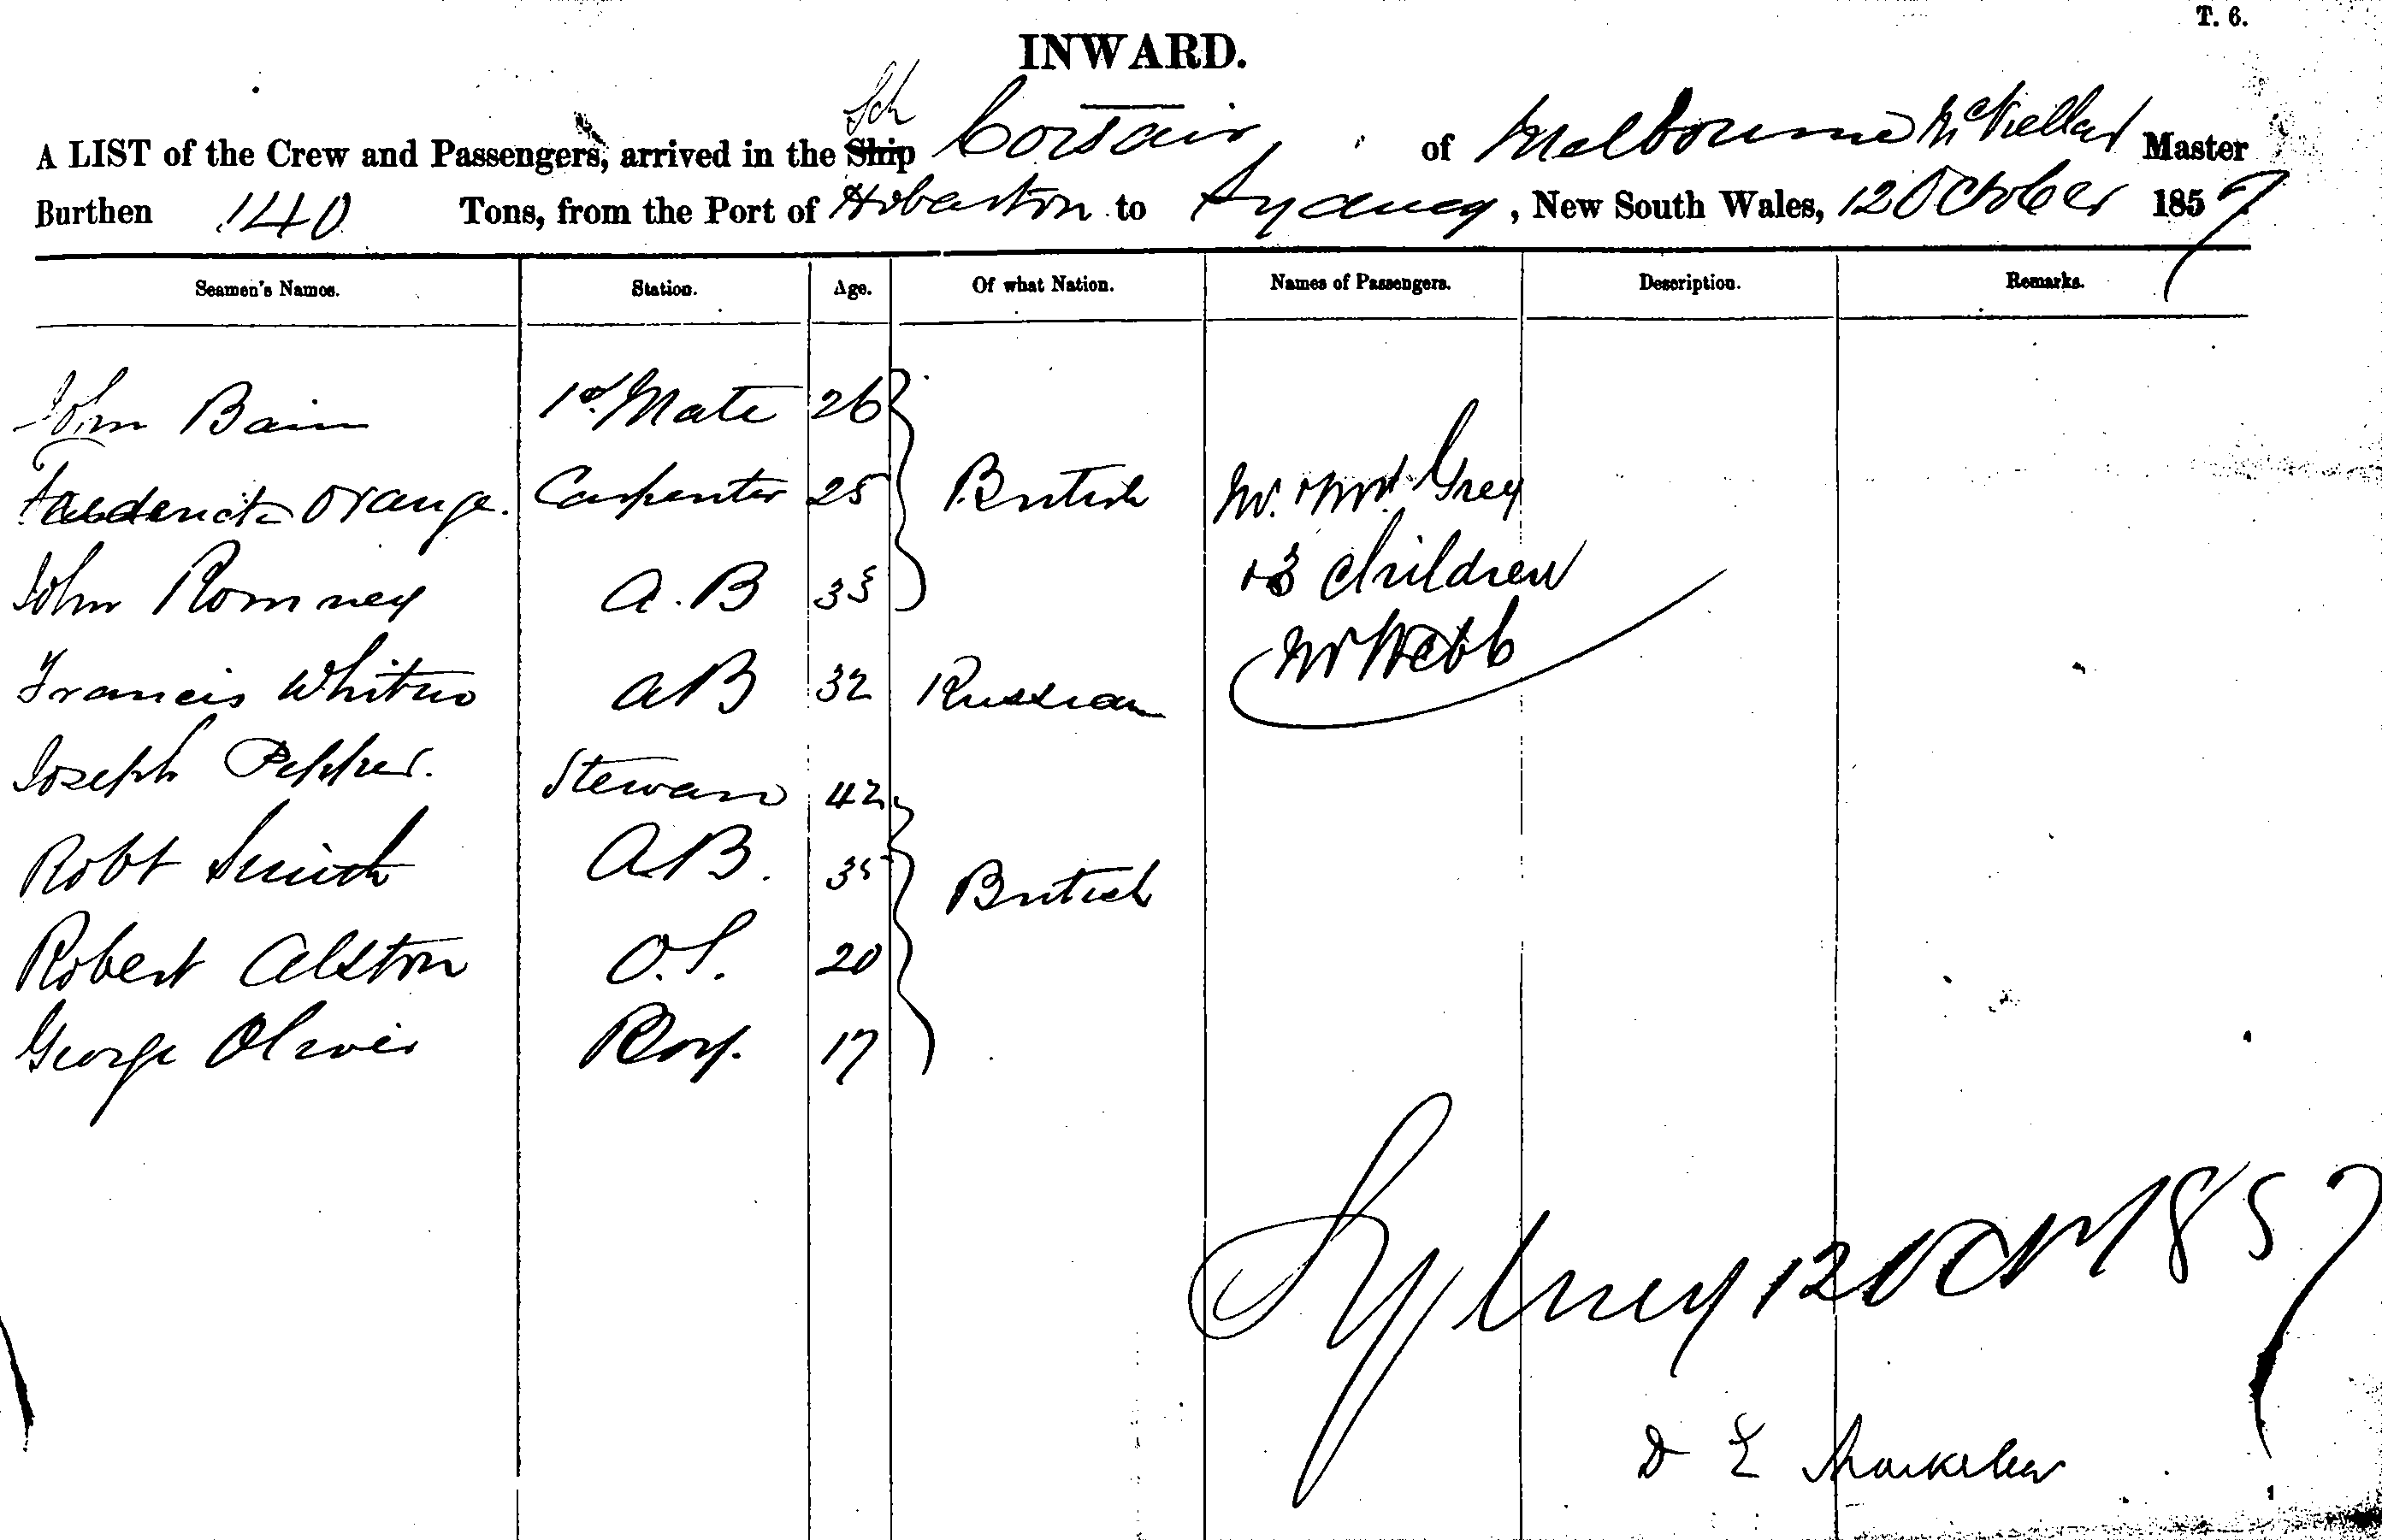 T. 6.
INWARD.
Sch
A LIST of the Crew and Passengers, arrived in the Ship Corsair of Melbourne McKellar Master
Burthen 140 Tons, from the Port of Hobarton to Sydney, New South Wales, 12 October 1857
Seamen's Names. Station. Age. Of what Nation. Names of Passengers. Description. Remarks.
John Bain 1st Mate 26
Frederick Orange. Carpenter 25 British Mr. & Mrs. Grey
John Romney A.B 35 & 3 Children
Francis AB 32 Russian Mr Webb
Joseph Pepper. Steward 42
Robt Smith AB. 35 British
Robert Alston O.S. 20
George Oliver Boy. 17
Sydney 12 Octr 1857
D